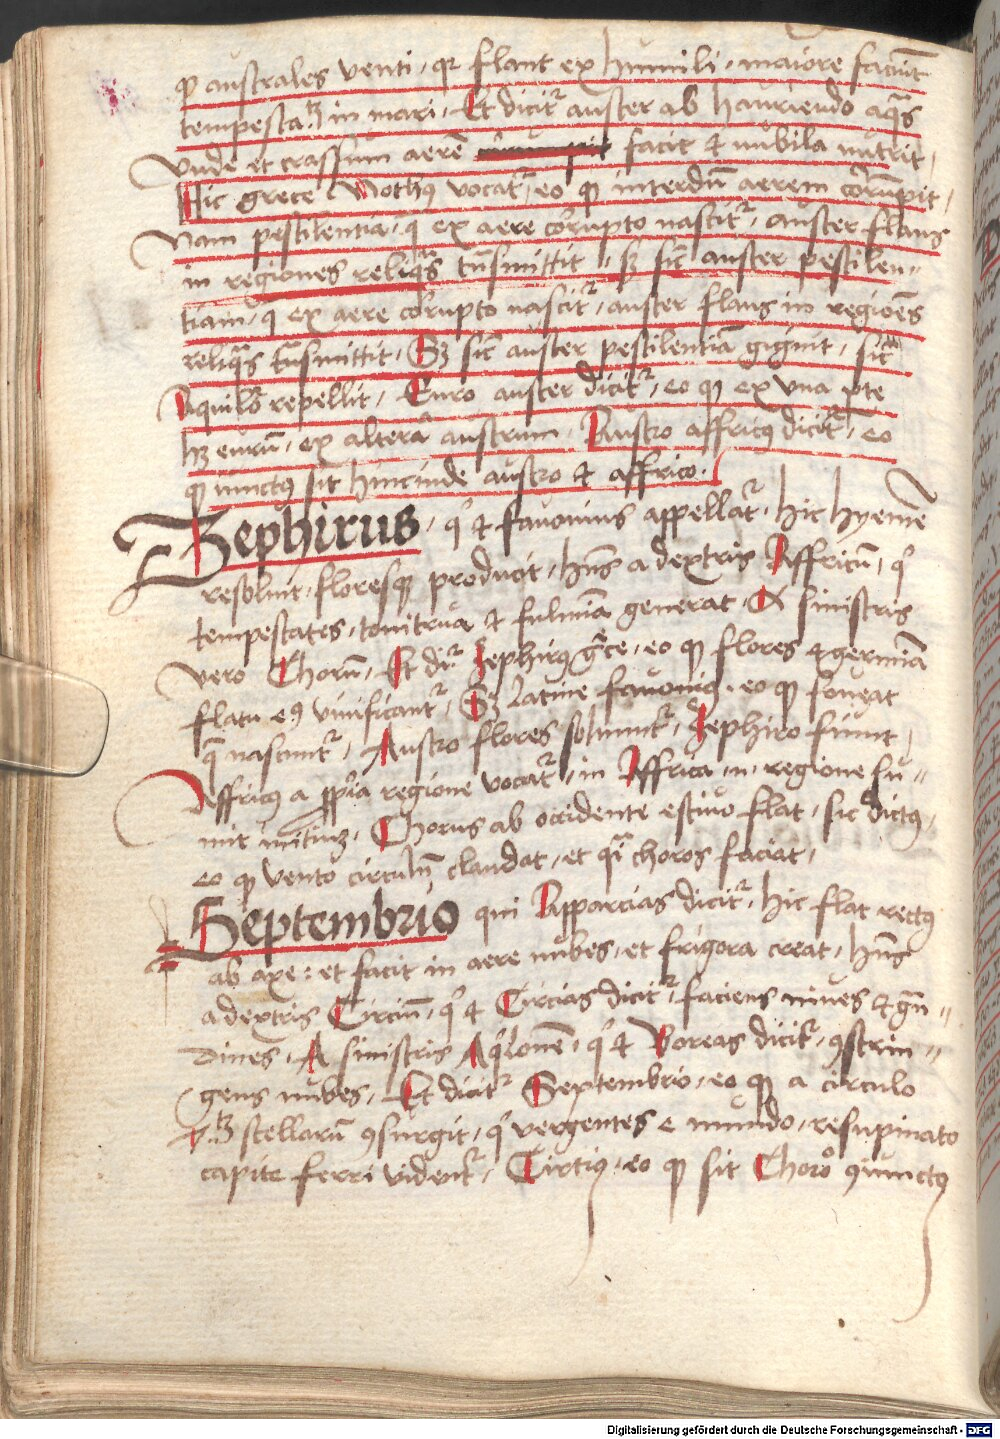 qꝫ australes venti, qr flant ex humili, maiorē faciūt
tempestatꝫ in mari, Et dicitᷣ auster ab hauriendo aqᷓs
Vnde et crassum aerē facit ⁊ nubila nutrit,
Hic grece Nothꝰ vocatᷣ, eo qꝫ interdū aerem corrūpit,
Nam pestilentia, q̄ ex aere corrupto nascitᷣ, auster flans
in regiones reliqᷓs trᷓsmittit, sꝫ sic̄ auster pestilen=
tiam, q̄ ex aere corrupto nascitᷣ, auster flans in regioēs
reliqᷓs trᷓsmittit, Sꝫ sic̄ auster pestilentiā gignit, sic
Aquilo repellit, Euro auster dicitᷣ, eo qꝫ ex vna pte
hꝫ eurū, ex altera austrum, Austro affricꝰ dicitᷣ, eo
qꝫ iunctꝰ sit hincinde austro ⁊ affrico.
Zephirus, qͦ ⁊ fauonius appellatᷣ, hic hyemē
resoluit, floresqꝫ producit, hn̄s a dextris Affricū, qͦ
tempestates, tonitrua ⁊ fulmīa generat, A sinistris
vero Chorū, Et dr̄ Zephirꝰ gᷓce, eo qꝫ flores ⁊ germīa
flatu eꝰ viuificantᷣ, Sꝫ latine fauoniꝰ, eo qꝫ foueat
q̄ nascuntᷣ, Austro flores soluuntᷣ, Zephiro fiunt,
Affricꝰ a ꝓpria regione vocatᷣ, in Affrica .n. regione su=
mit initiuꝫ, Chorus ab occidente estiuo flat, sic dictꝰ,
eo qꝫ vento circulū claudat, et qͣi choros faciat,
Septembrio qui Apparcias dicitᷣ, hic flat rectꝰ
ab axe: et facit in aere nubes, et frigora creat, hn̄s
a dextris Circiū, qͦ ⁊ Circias dicitᷣ, faciens niues ⁊ gᷓn=
dines, A sinistris Aqͥlonē, qͦ ⁊ Boreas dicitᷣ, ꝯstrin=
gens nubes, Et dicitᷣ Septembrio, eo qꝫ a circulo
stellarū ꝯsurgit, qͦ vergentes e mundo, resupinato
capite ferri videntᷣ, Cirtiꝰ, eo qꝫ sit Choro ꝯiunctꝰ
Digitalisierung gefördert durch die Deutsche Forschungsgemeinschaft - DFG